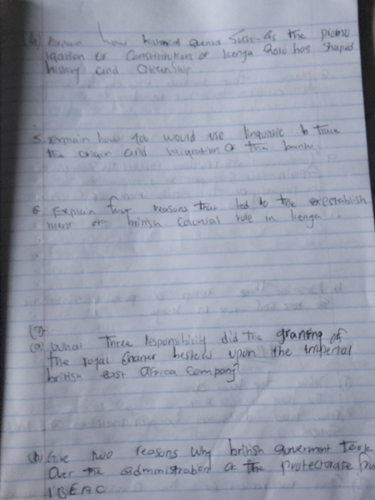 (b) Explain how historical events such as the promul
gation of Constitution of Kenya 2010 has shaped
history and citizenship
5. Explain how you would use linguistic to trace
the origin and migration of the bantu.
6. Explain four reasons that led to the establish
ment of british colonial rule in kenya
(7)
(a) What three responsibility did the granting of
the royal Charter bestow upon the imperial
british east africa company
(b) Give two reasons why british government took
Over the administration of the protectorate
IBEAC